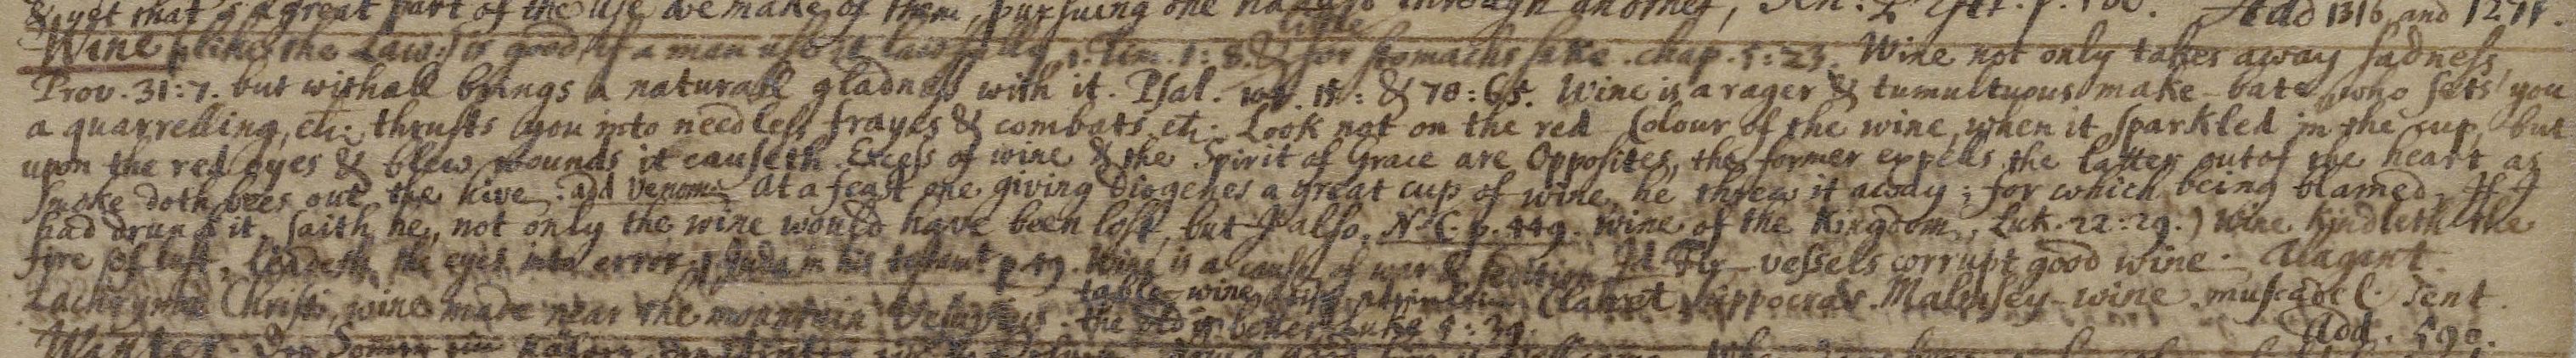 & yet that is a great part of the use we make of them, pursuing one through another, Add 1316, and
Wine like the Law: is good if a man use it lawfully, 1. Tim. 1: 8. & little for stomachs sake. chap. 5: 23. Wine not only takes away sadness,
Prov. 31: 7. but withall brings a naturall gladness with it. Psal. 104. 15: & 78: 65. Wine is a rager & tumultuous make-bate, who sets you
a quarrelling, etc: thrusts you into needless frayes & combats, etc: Look not on the red Colour of the wine, when it sparkled in the cup, but
upon the red eyes & blew wounds it causeth. Excess of wine & the Spirit of Grace are Opposites, the former expells the latter out of the heart, as
smoke doth bees out the hive. add Venom. At a feast one giving Diogenes a great cup of wine, he threw it away; for which being blamed, If I
had drunk it, saith he, not only the wine would have been lost, but I also. N. C. p. 449. wine of the Kingdom, Luk. 22: 29.) Wine kindleth the
fire of lust, leadeth the eyes into error. Juda in his testamt p. 49. Wine is a cause of war & sedition Id vessels corrupt good wine.
Lachrymae Christi, wine made near the mountain Vesuvius. table-wine Claret, Hippocras. Malmsey-wine. muscadel. Tent.
the old is better Luke 5: 39. Add. 590.